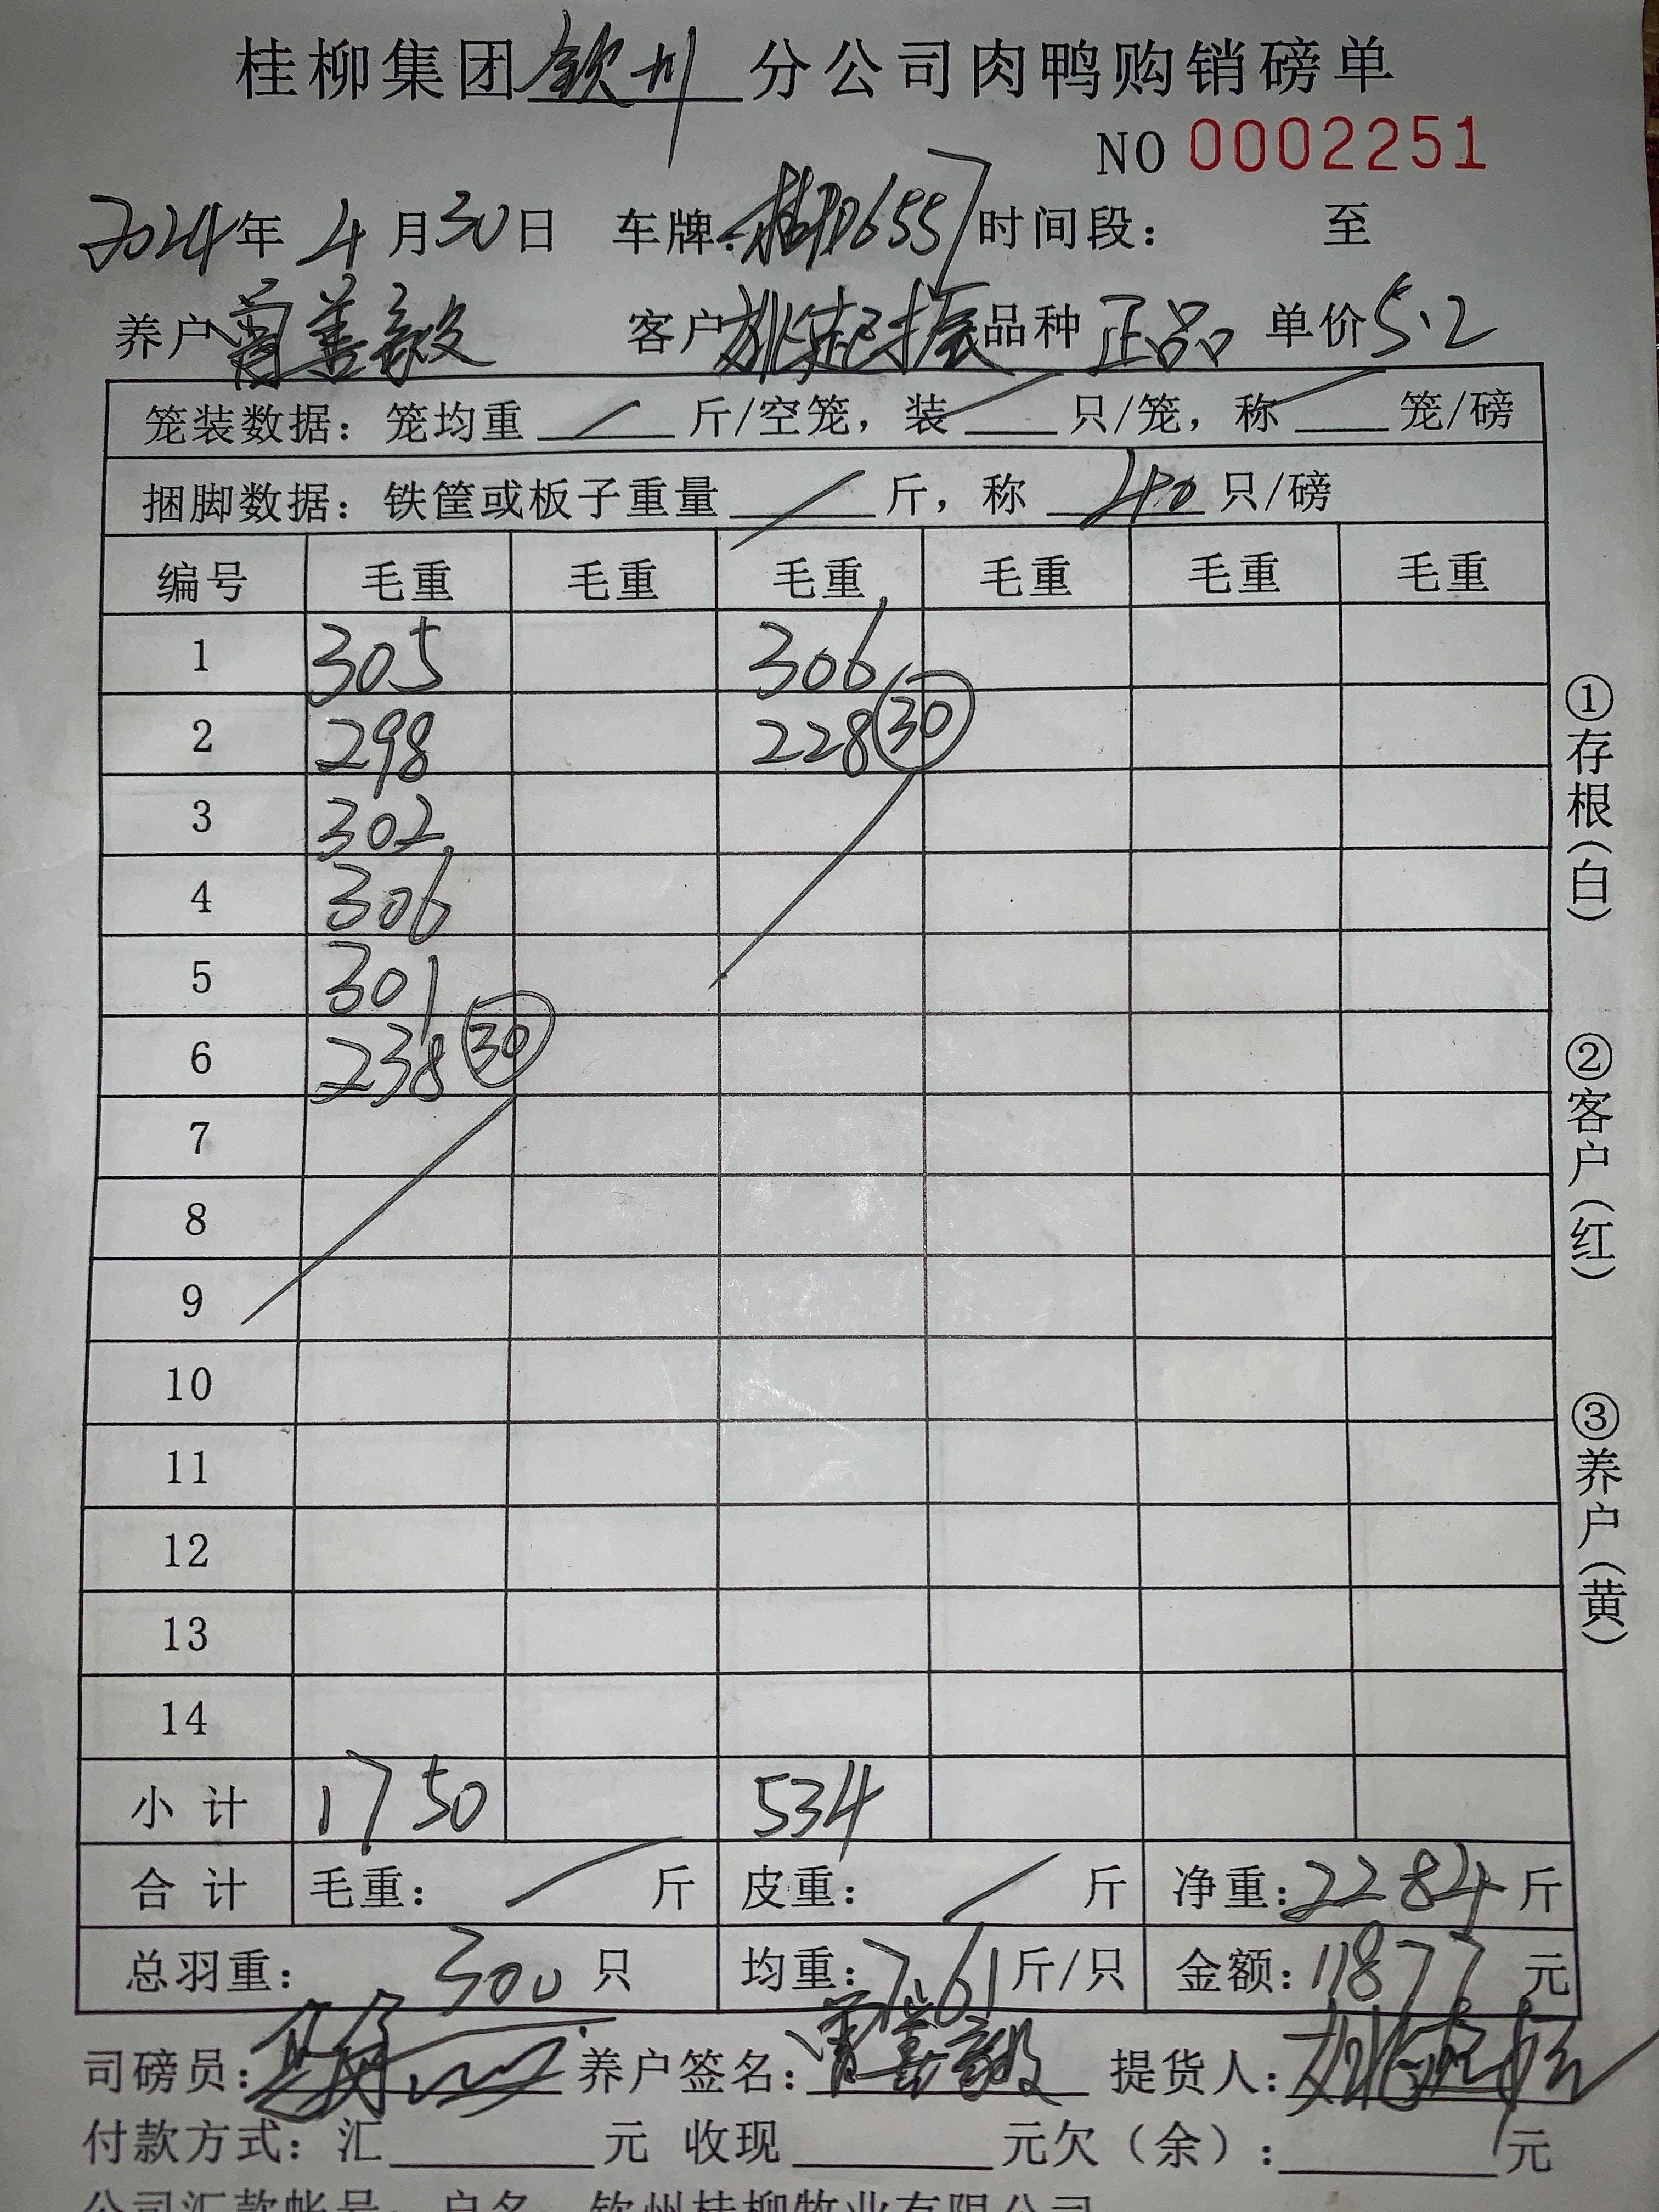 桂柳集团钦州分公司肉鸭购销磅单
NO 0002251
2024年4月30日 车牌:桂D6557 时间段: 至
养户 曾善毅 客户 姚起振 品种 正品 单价 5.2
笼装数据: 笼均重 / 斤/空笼, 装 / 只/笼, 称 / 笼/磅
捆脚数据: 铁筐或板子重量 / 斤, 称 40 只/磅
编号 毛重 毛重 毛重 毛重 毛重 毛重
1 305 306
2 298 228 30
3 302
4 306
5 301
6 238 30
7
8
9
10
11
12
13
14
小计 1750 534
合计 毛重: / 斤 皮重: / 斤 净重: 2284 斤
总羽重: 300 只 均重: 7.61 斤/只 金额: 11877 元
司磅员: 养户签名: 曾善毅 提货人: 姚起振
付款方式: 汇 元 收现 元欠(余): 元
公司汇款帐号: 户名: 钦州桂柳牧业有限公司
①存根(白)
②客户(红)
③养户(黄)